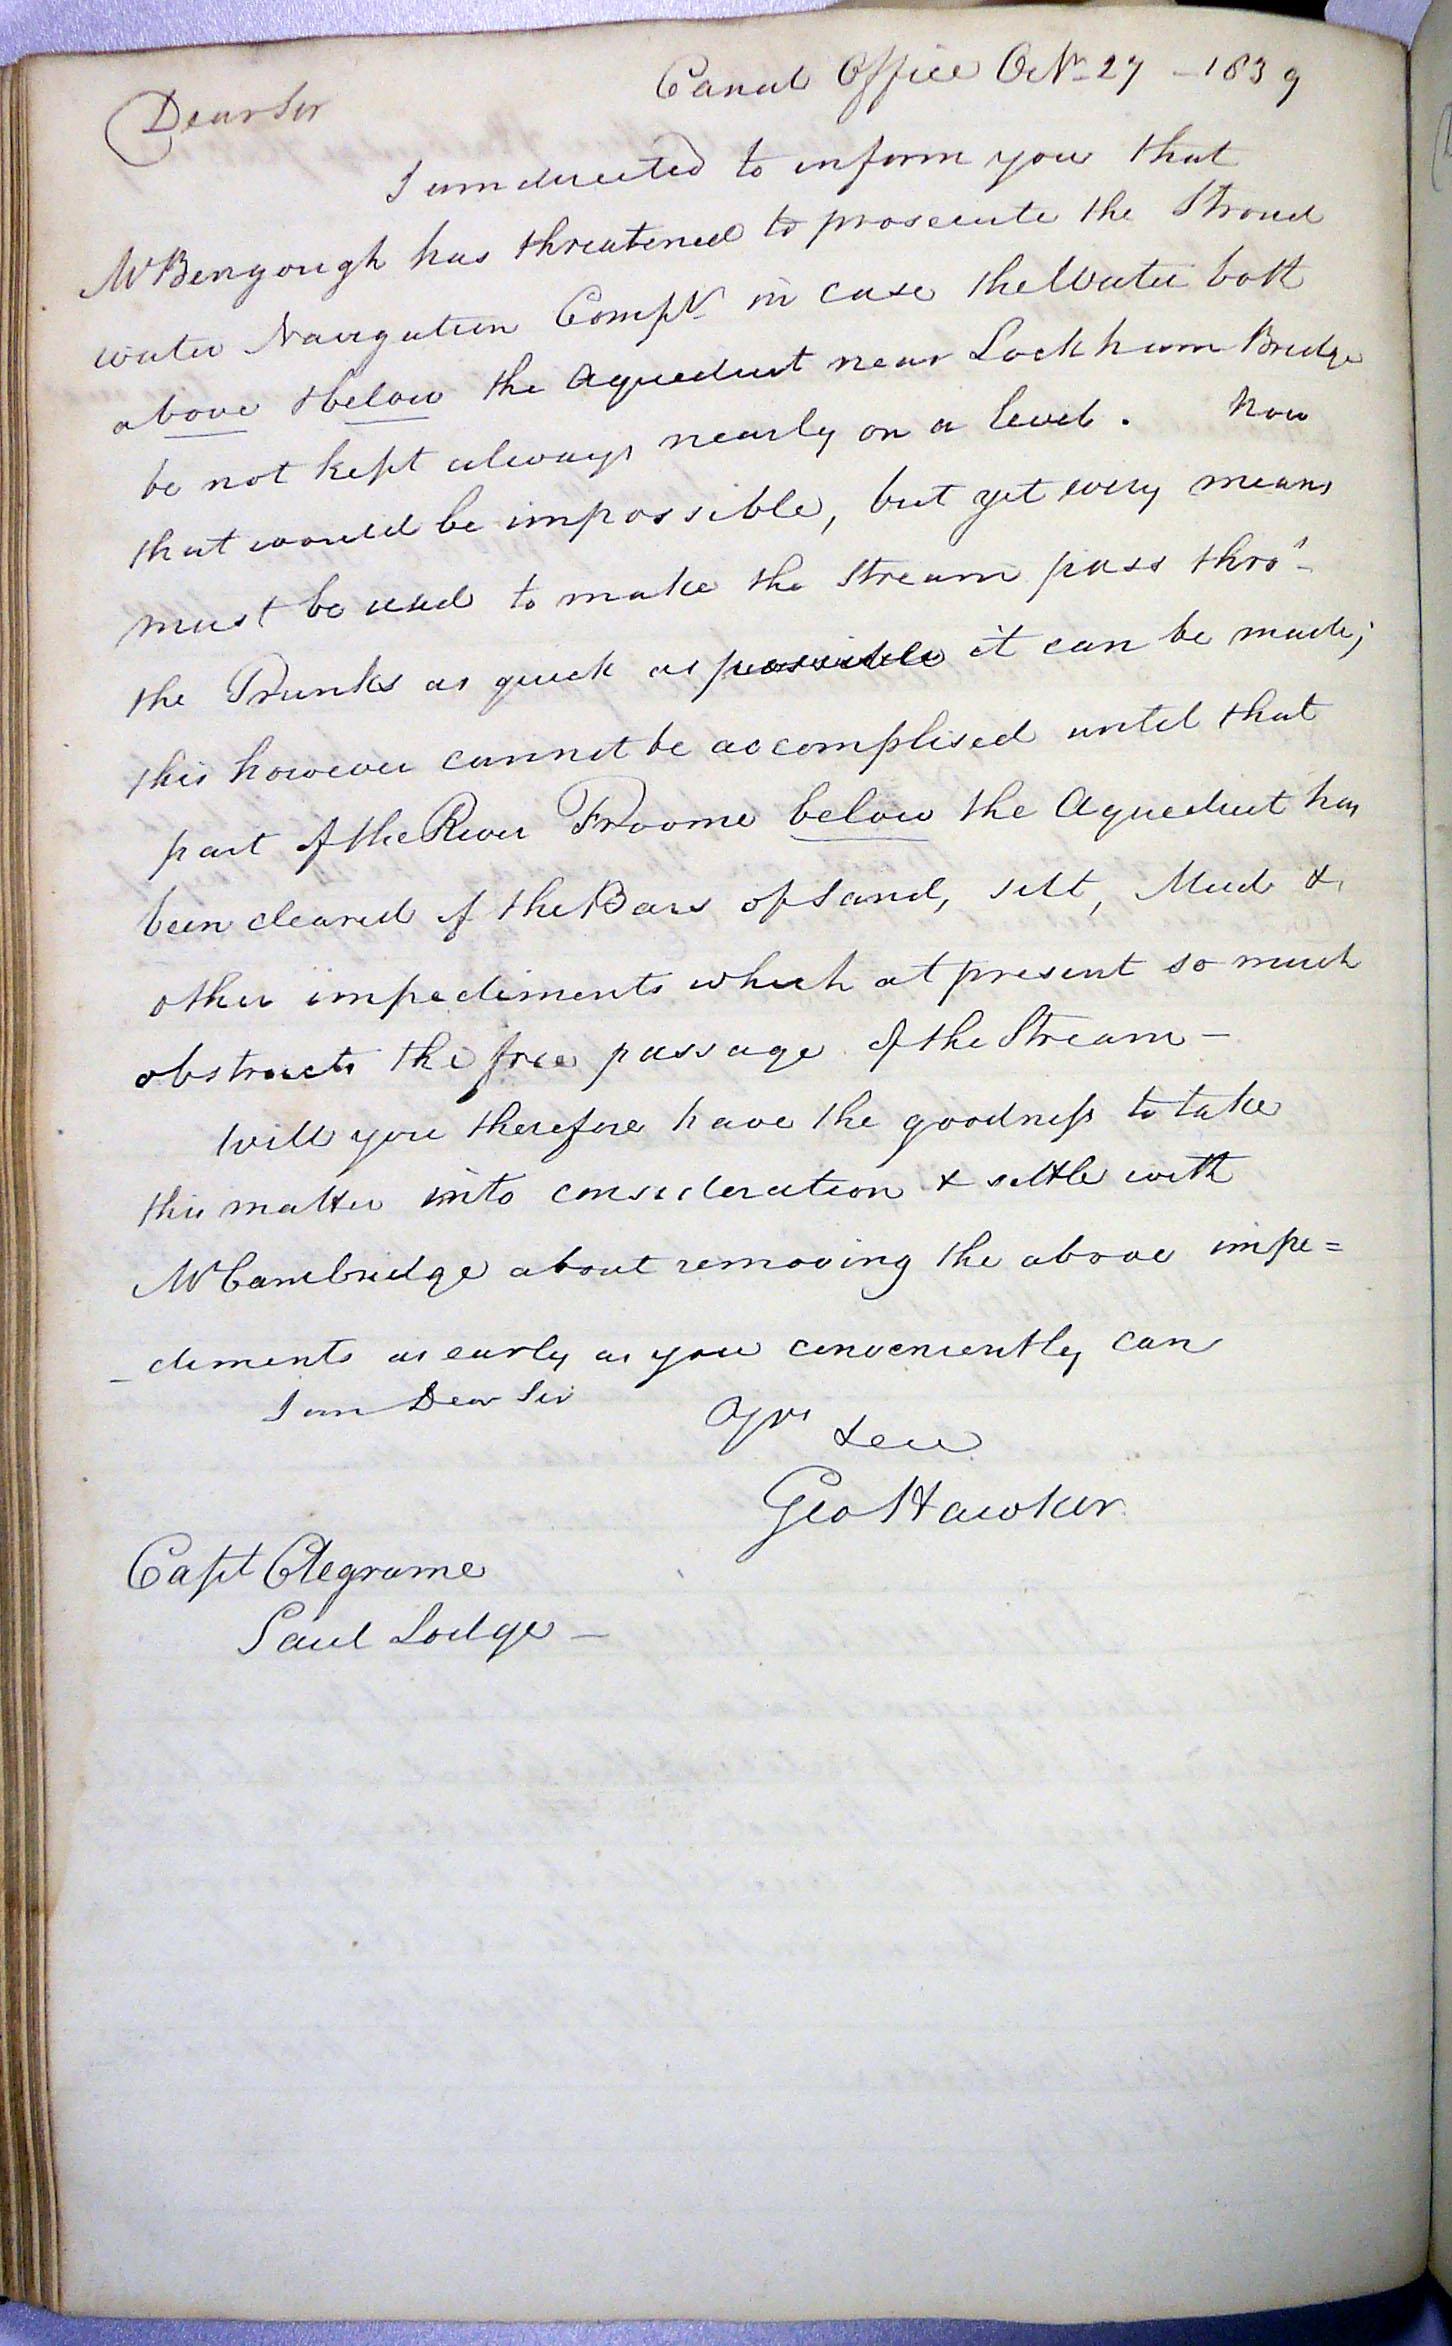 Canal Office Octr 27 - 1839
Dear Sir
I am directed to inform you that
Mr Bengough has threatened to prosecute the Stroud
water Navigation Compy in case the Water both
above & below the Aqueduct near Lockham Bridge
be not kept always nearly on a level. Now
that would be impossible, but yet every means
must be used to make the Stream pass thro'
the Trunks as quick as possible it can be made;
this however cannot be accomplised until that
part of the River Froome below the Aqueduct has
been cleared of the Bars of Sand, silt, Mud &
other impediments which at present so much
obstructs the free passage of the Stream -
Will you therefore have the goodness to take
this matter into consideration & settle with
Mr Cambridge about removing the above impe=
-diments as early as you conveniently can
I am Dear Sir
Yrs &c
Geo Hawker
Capt Clegrame
Saul Lodge -